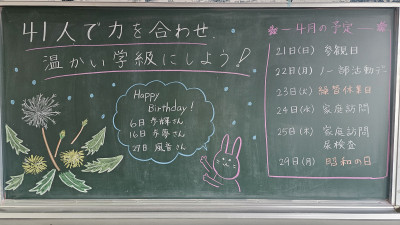 41人で力を合わせ、
温かい学級にしよう!
Happy
Birthday!
6日 歩輝さん
16日 歩夢さん
27日 風音さん
－4月の予定－
21日(日) 参観日
22日(月) ノー部活動デー
23日(火) 振替休業日
24日(水) 家庭訪問
25日(木) 家庭訪問
尿検査
29日(月) 昭和の日